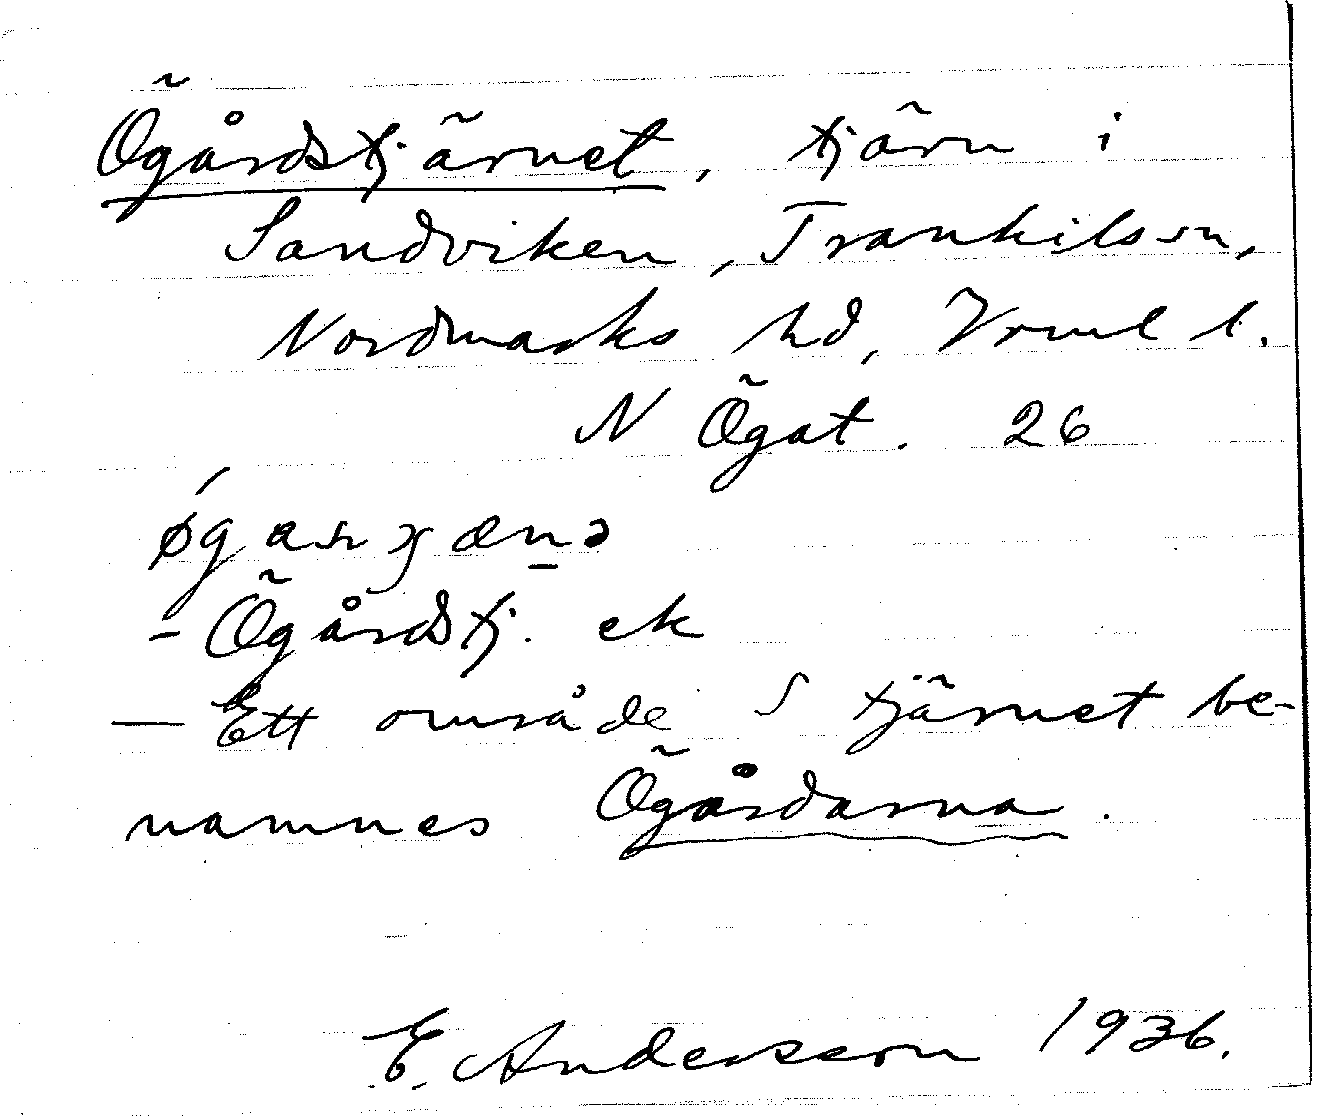 Ögårdstjärnet, tjärn i
Sandviken, Trankils sn,
Nordmarks hd, Vrml l.
N Ögat. 26
- Ögårdstj. ek
— Ett område S tjärnet be-
namnes Ögårdarna.
E. Andersson 1936.